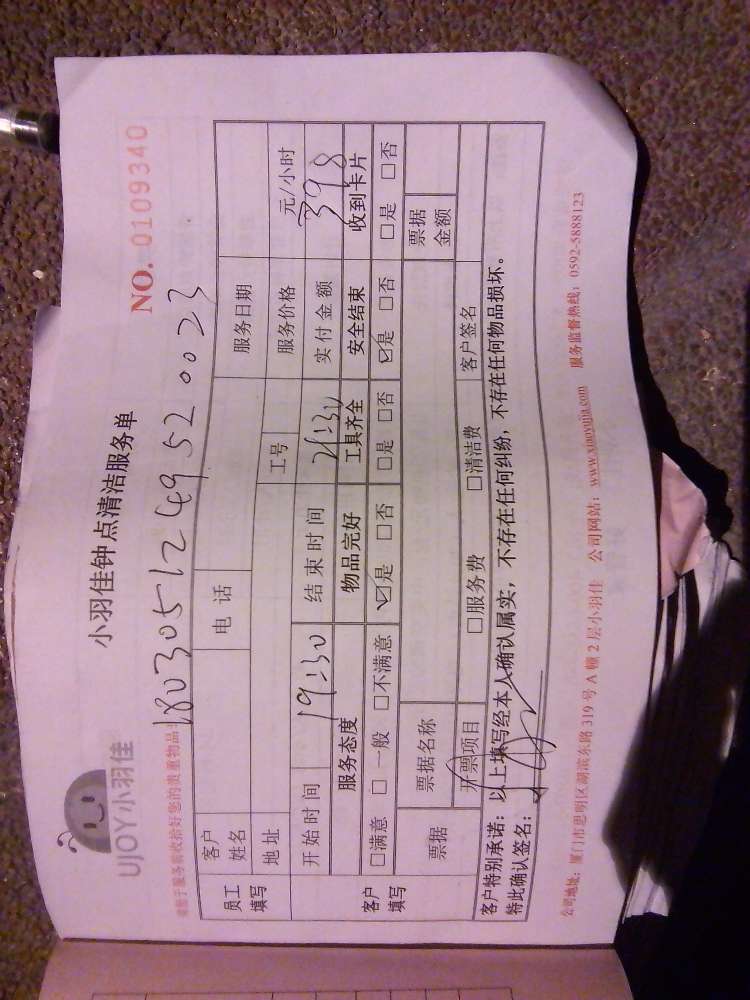 UJOY小羽佳
小羽佳钟点清洁服务单
NO. 0109340
请您于服务前收拾好您的贵重物品!
180305124952 0023
员工填写
客户姓名
电话
服务日期
地址
工号
服务价格
元/小时
开始时间
19:30
结束时间
21:30
实付金额
398
客户填写
服务态度
物品完好
工具齐全
安全结束
收到卡片
□满意 □一般 □不满意
☑是 □否
□是 □否
☑是 □否
□是 □否
票据
票据名称
票据金额
开票项目
□服务费
□清洁费
客户签名
客户特别承诺:以上填写经本人确认属实,不存在任何纠纷,不存在任何物品损坏。
特此确认签名:
公司地址:厦门市思明区湖滨东路319号A幢2层小羽佳 公司网站:www.xiaoyujia.com 服务监督热线:0592-5888123